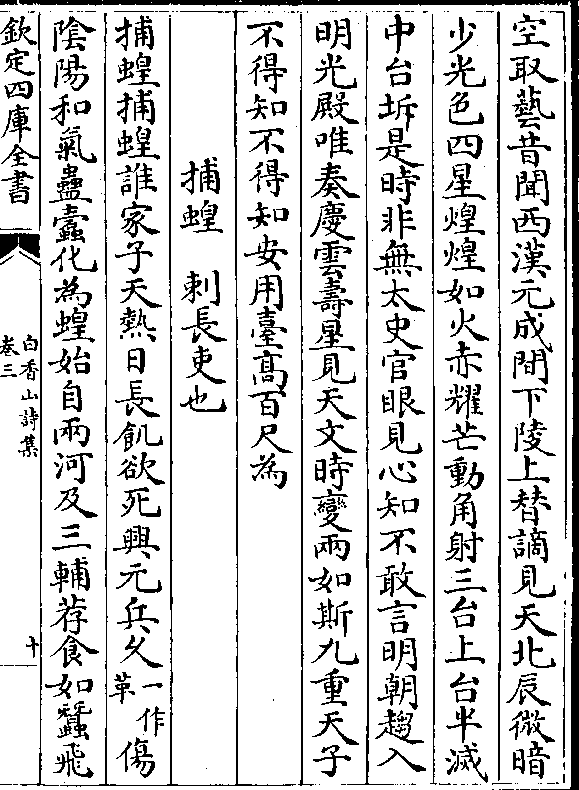 空取藝昔聞西漢元成間下陵上替謫見天北辰微暗
少光色四星煌煌如火赤耀芒動角射三台上台半滅
中台坼是時非無太史官眼見心知不敢言明朝趨入
明光殿唯奏慶雲壽星見天文時變兩如斯九重天子
不得知不得知安用臺高百尺為
捕蝗　刺長吏也
捕蝗捕蝗誰家子天熱日長飢欲死興元兵久一作革傷
陰陽和氣蠱蠹化為蝗始自兩河及三輔荐食如蠶飛
欽定四庫全書
白香山詩集
卷三
十